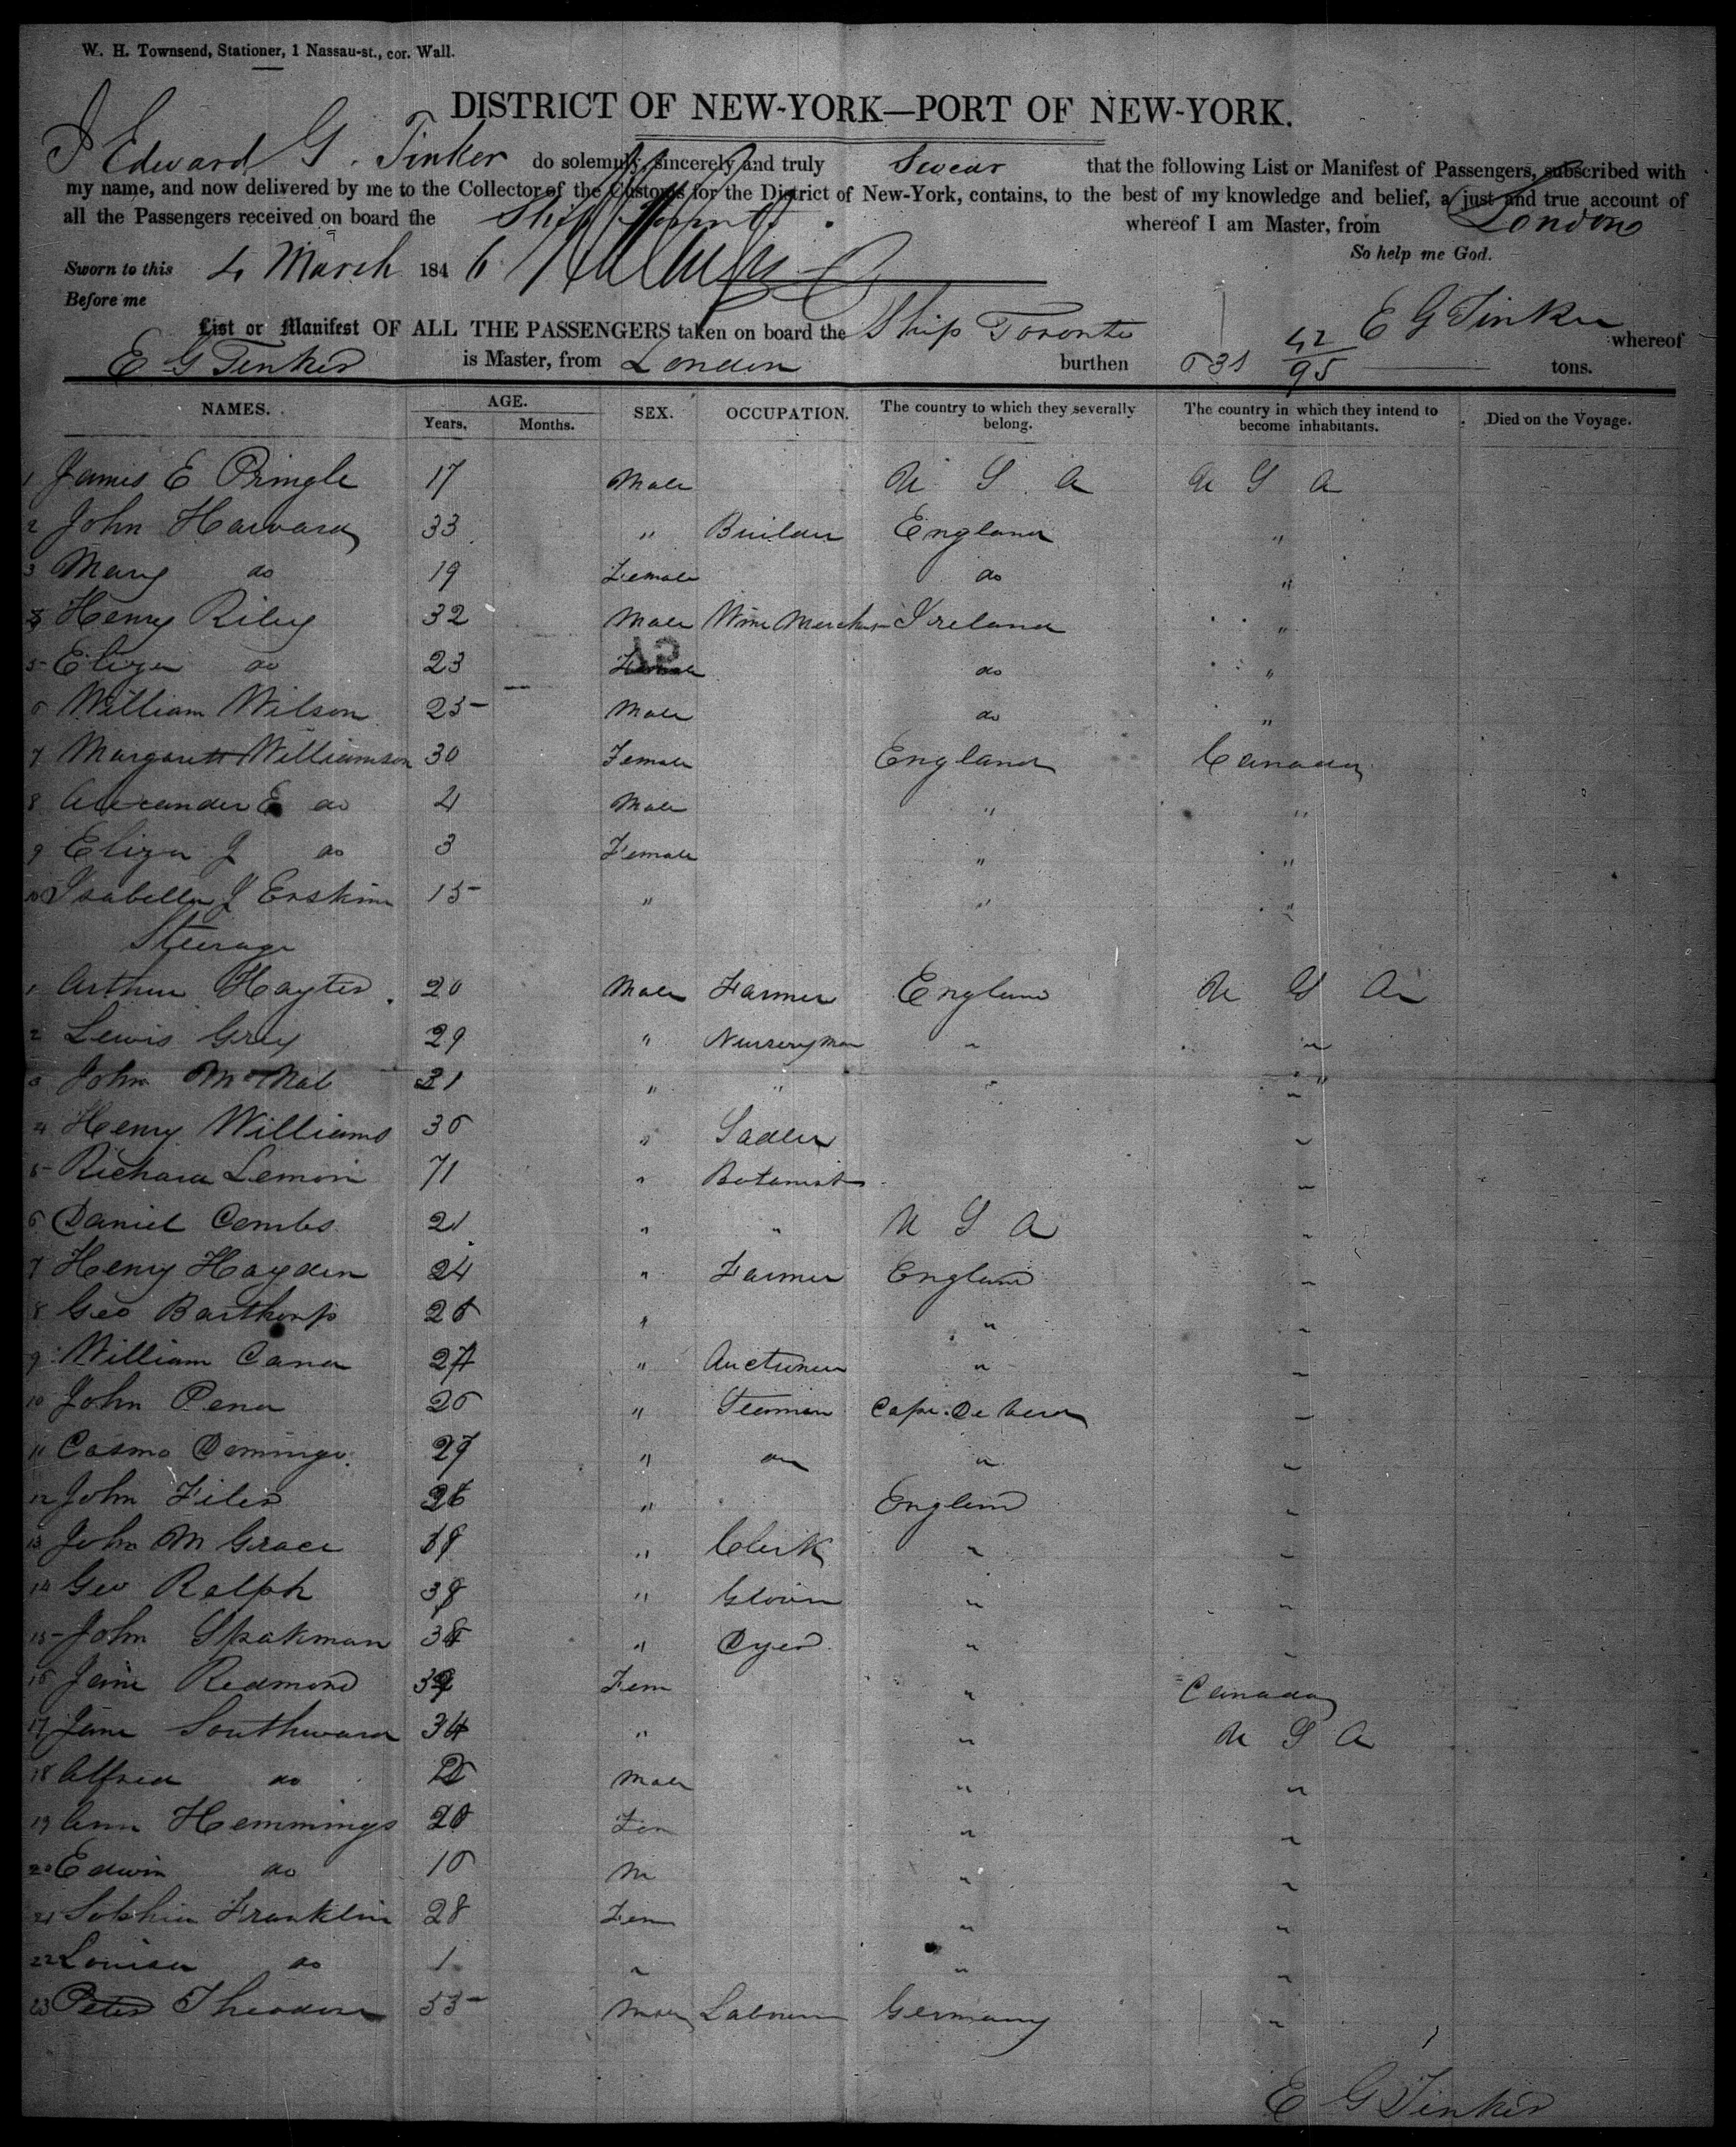 W. H. Townsend, Stationer, 1 Nassau-st., cor. Wall.
DISTRICT OF NEW-YORK—PORT OF NEW-YORK.
I Edward G. Tinker do solemnly, sincerely and truly Swear that the following List or Manifest of Passengers, subscribed with
my name, and now delivered by me to the Collector of the Customs for the District of New-York, contains, to the best of my knowledge and belief, a just and true account of
all the Passengers received on board the Ship Toronto whereof I am Master, from London
So help me God.
Sworn to this 4 March 1846
Before me
E G Tinker
List or Manifest OF ALL THE PASSENGERS taken on board the Ship Toronto whereof
E G Tinker is Master, from London burthen 631 42/95 tons.
NAMES. AGE. Years. Months. SEX. OCCUPATION. The country to which they severally belong. The country in which they intend to become inhabitants. Died on the Voyage.
1 James E Pringle 17 Male U S A U S A
2 John Harvard 33 " Builder England "
3 Mary do 19 Female do "
Henry Riley 32 Male Wine Merchant Ireland "
5 Eliza do 23 Female do "
6 William Wilson 25 Male do "
7 Margarett Williamson 30 Female England Canada
8 Alexander E do 4 Male " "
9 Eliza J do 3 Female " "
10 Isabella J Erskine 15 " " "
Steerage
1 Arthur Hayter 20 Male Farmer England U S A
2 Lewis Grey 29 " Nurseryman " "
3 John McNab 21 " " " "
4 Henry Williams 36 " Sadler "
5 Richard Lemon 71 " Botanist "
6 Daniel Combs 21 " " U S A "
7 Henry Hayden 24 " Farmer England "
8 Geo Barthorp 26 " " "
9 William Cana 27 " Auctioneer " "
10 John Pena 26 " Seaman Cape De Verd "
11 Casmo Domingo 27 " do " "
12 John Files 26 " England "
13 John M Grace " Clerk " "
14 Geo Ralph 38 " Glover " "
15 John Spakman " Dyer " "
16 Jane Redmond Fem " Canada
17 Jane Southward 34 " " U S A
18 Alfred do Male " "
19 Ann Hemmings 20 Fem " "
20 Edwin do 10 M " "
21 Sophia Franklin 28 Fem " "
22 Louisa do 1 " " "
23 Peter Theodore 35 Male Labourer Germany "
E G Tinker